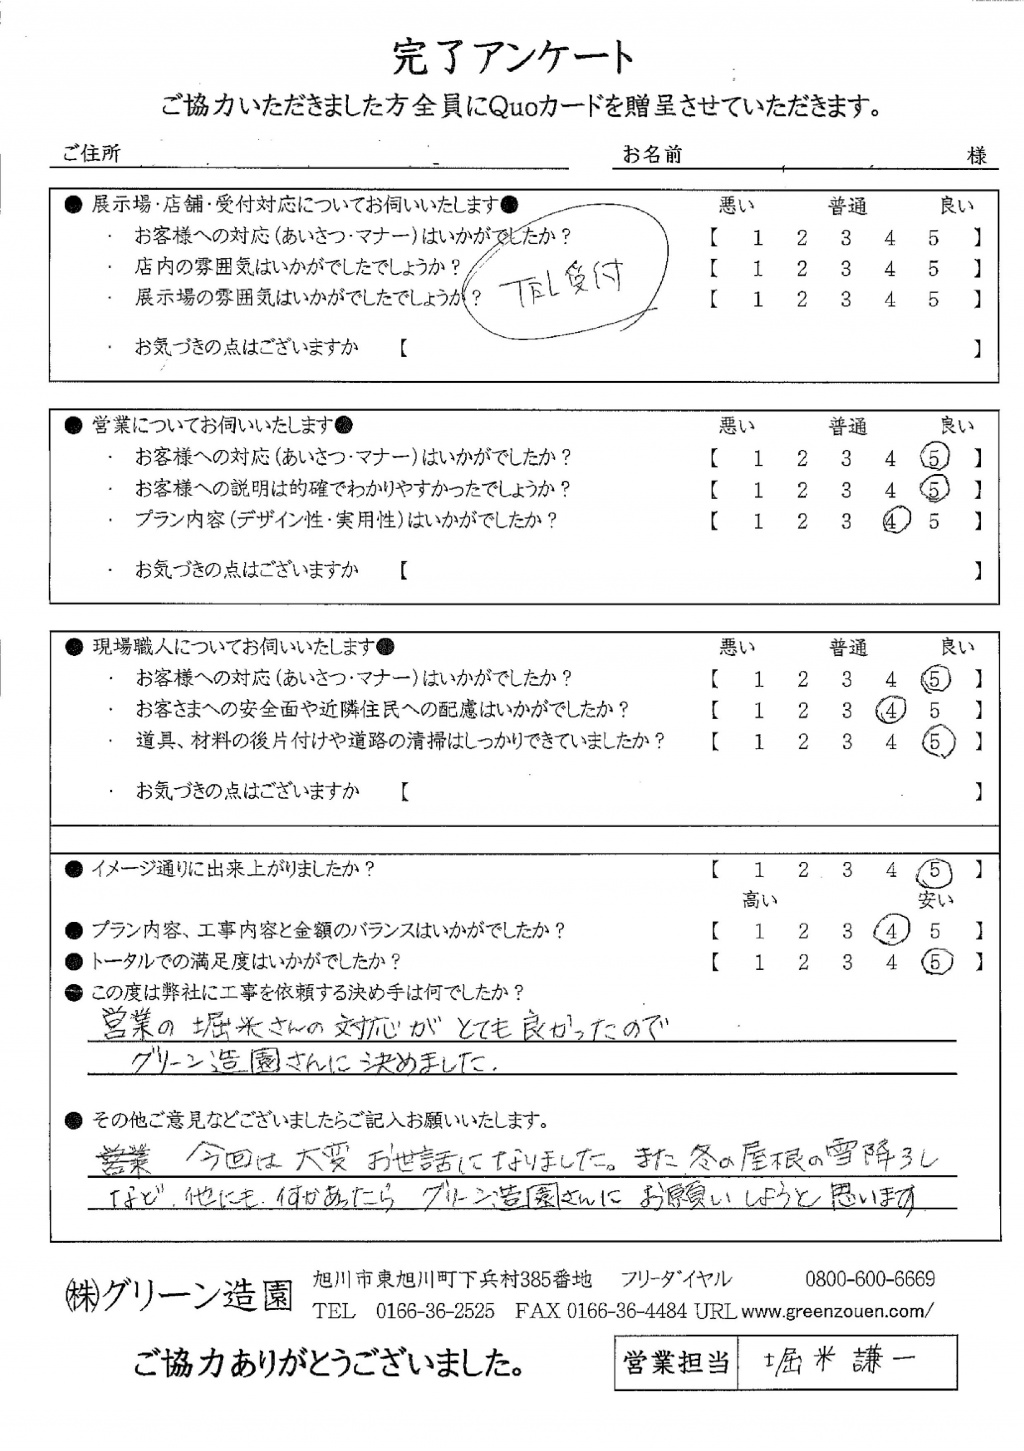 完了アンケート
ご協力いただきました方全員にQuoカードを贈呈させていただきます。
ご住所 お名前 様
● 展示場・店舗・受付対応についてお伺いいたします● 悪い 普通 良い
・ お客様への対応(あいさつ・マナー)はいかがでしたか? 【 1 2 3 4 5 】
・ 店内の雰囲気はいかがでしたでしょうか? 【 1 2 3 4 5 】
・ 展示場の雰囲気はいかがでしたでしょうか? 【 1 2 3 4 5 】
TEL受付
・ お気づきの点はございますか 【 】
● 営業についてお伺いいたします● 悪い 普通 良い
・ お客様への対応(あいさつ・マナー)はいかがでしたか? 【 1 2 3 4 5 】
・ お客様への説明は的確でわかりやすかったでしょうか? 【 1 2 3 4 5 】
・ プラン内容(デザイン性・実用性)はいかがでしたか? 【 1 2 3 4 5 】
・ お気づきの点はございますか 【 】
● 現場職人についてお伺いいたします● 悪い 普通 良い
・ お客様への対応(あいさつ・マナー)はいかがでしたか? 【 1 2 3 4 5 】
・ お客さまへの安全面や近隣住民への配慮はいかがでしたか? 【 1 2 3 4 5 】
・ 道具、材料の後片付けや道路の清掃はしっかりできていましたか? 【 1 2 3 4 5 】
・ お気づきの点はございますか 【 】
● イメージ通りに出来上がりましたか? 【 1 2 3 4 5 】
高い 安い
● プラン内容、工事内容と金額のバランスはいかがでしたか? 【 1 2 3 4 5 】
● トータルでの満足度はいかがでしたか? 【 1 2 3 4 5 】
● この度は弊社に工事を依頼する決め手は何でしたか?
営業の 堀米さんの対応が とても良かったので
グリーン造園さんに決めました.
● その他ご意見などございましたらご記入お願いいたします。
営業 今回は 大変 お世話になりました。また 冬の屋根の雪降ろし
など、他にも何かあったら グリーン造園さんに お願いしようと 思います
㈱グリーン造園 旭川市東旭川町下兵村385番地 フリーダイヤル 0800-600-6669
TEL 0166-36-2525 FAX 0166-36-4484 URL www.greenzouen.com/
ご協力ありがとうございました。 営業担当 堀米謙一